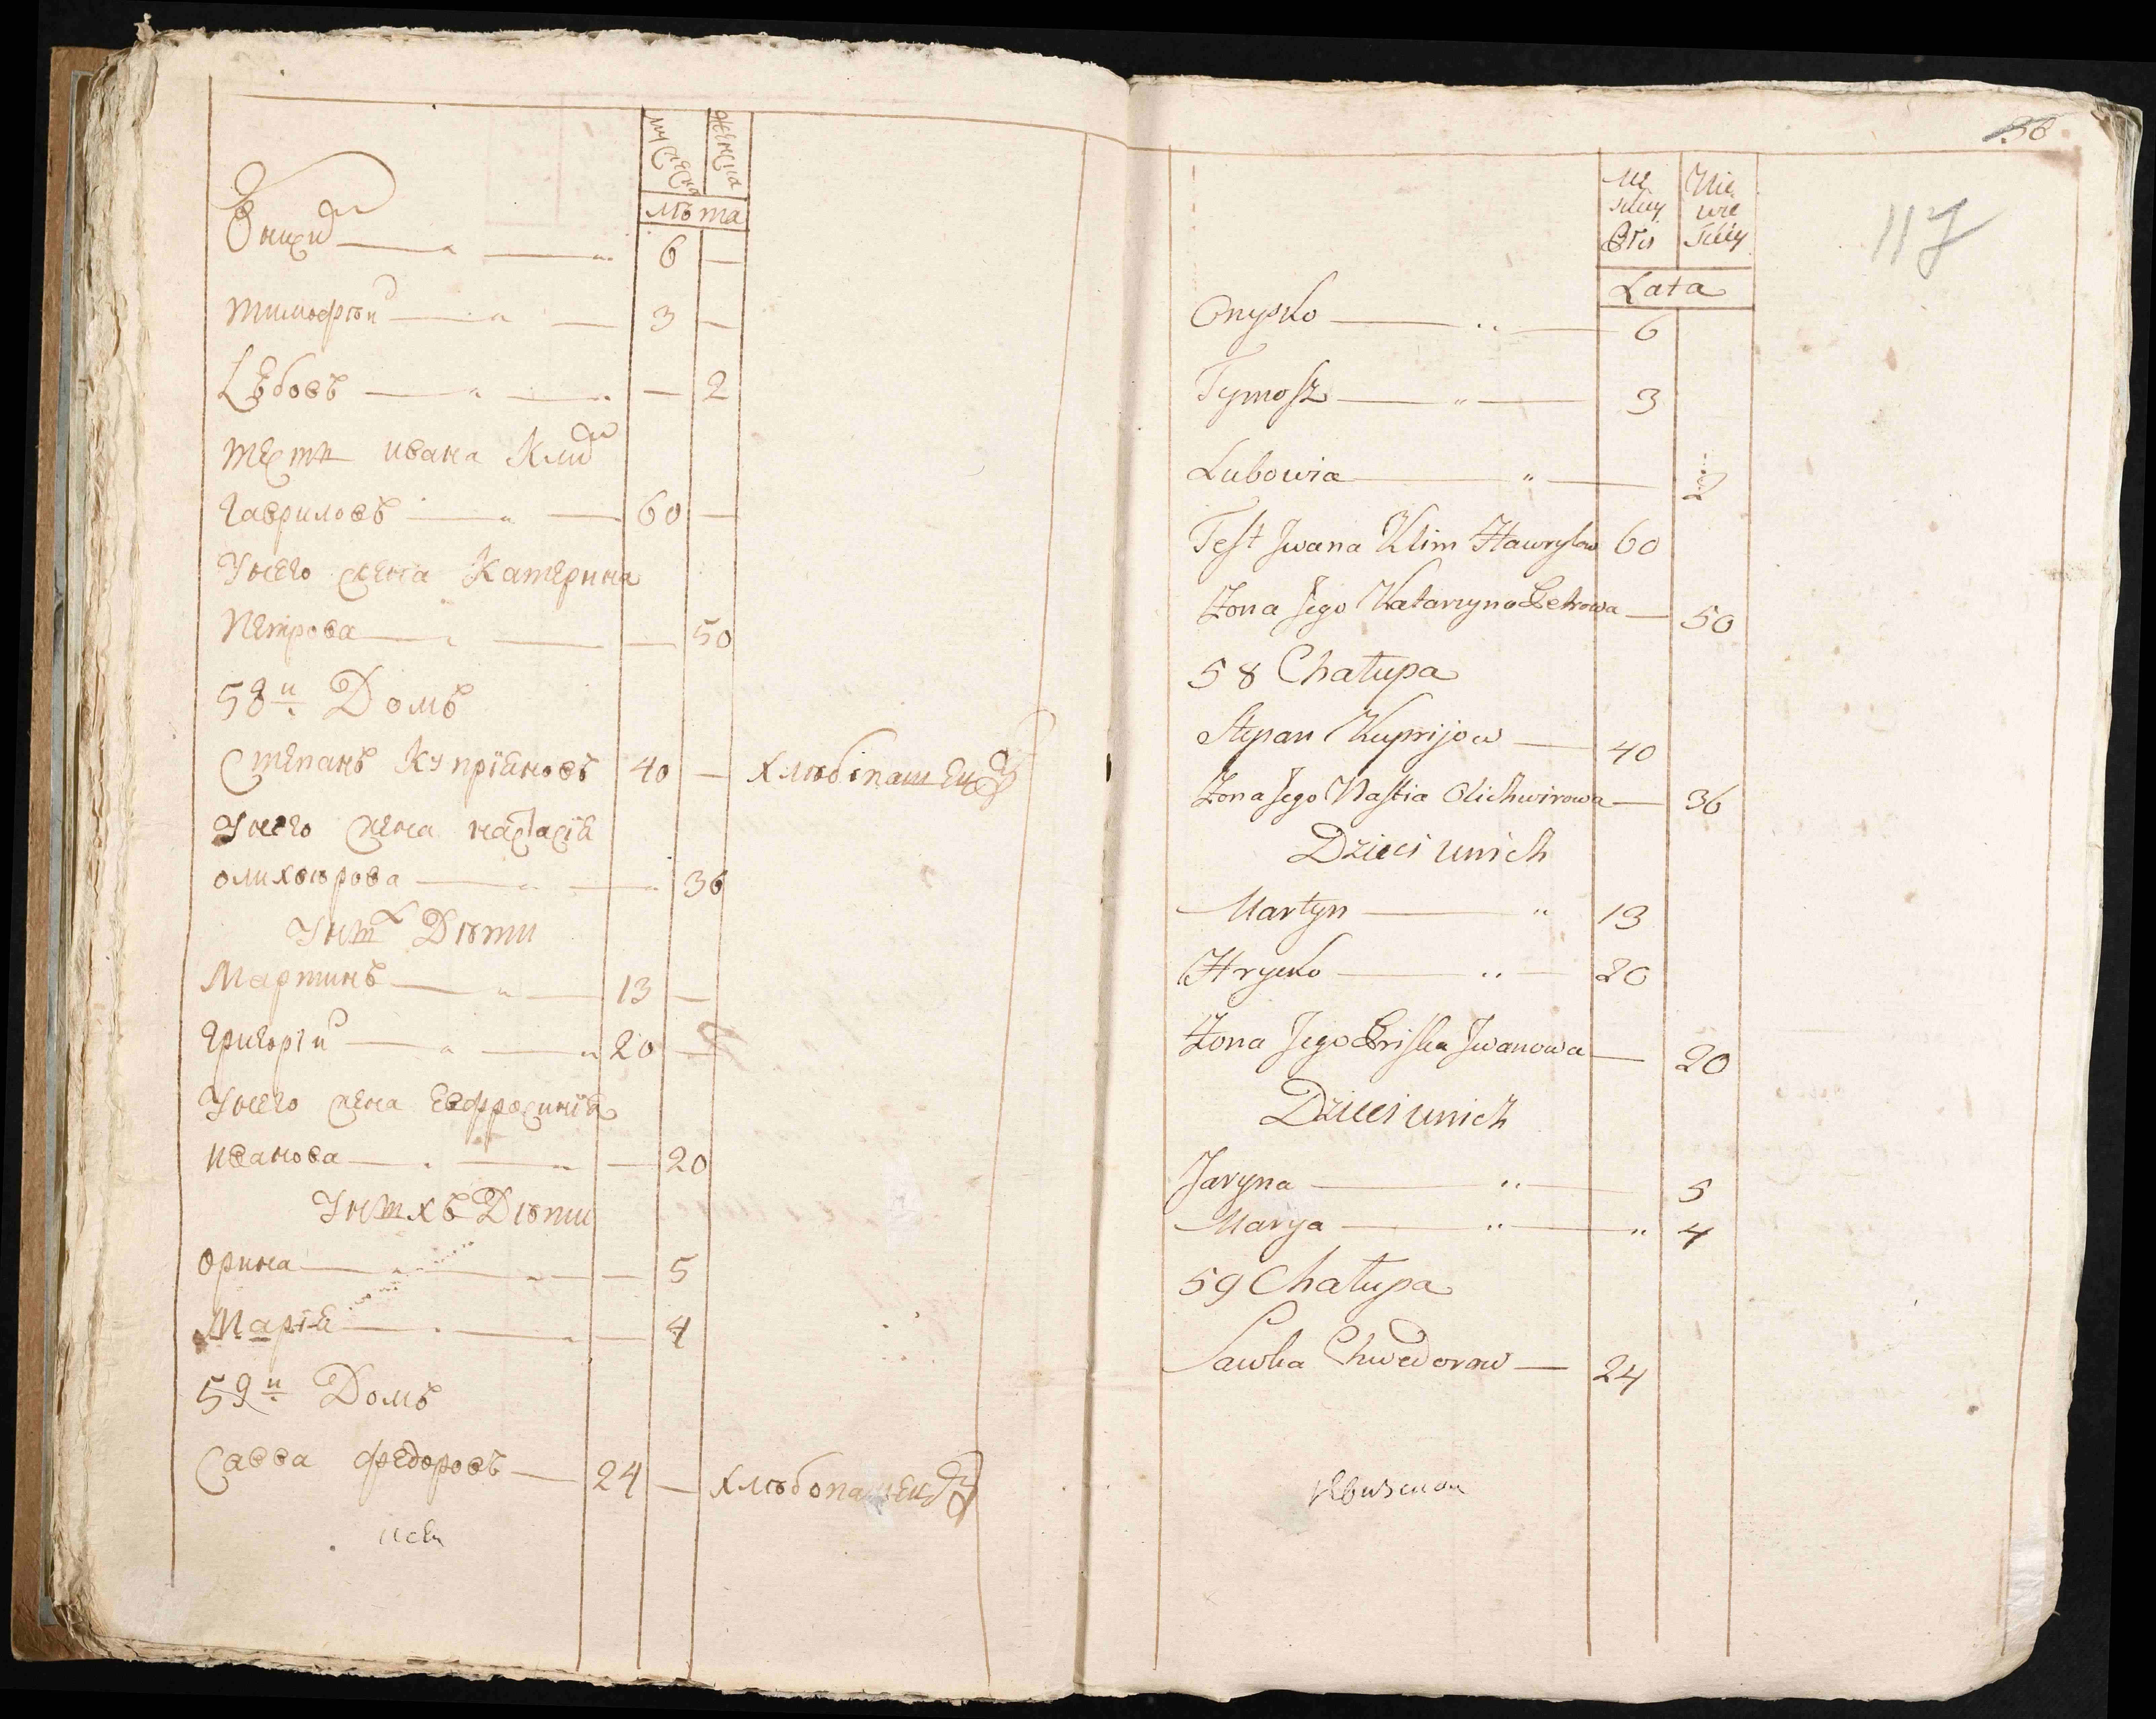 мужеска
женска
лѣта
Онисиі — 6 —
Тимофѣи — 3 —
Любовъ — — 2
тесть ивана Клим
Гавриловъ — 60 —
Унего жена Катерина
Петрова — — 50
58й Домъ
Степанъ Купріяновъ 40 — хлѣбопашецъ
Унего жена настасія
олихвѣрова — — 36
Унихъ Дѣти
Мартинъ — 13 —
Григоріи — 20 —
Унего жена Евфросинія
иванова — — 20
Унихъ Дѣти
орина — — 5
Марія — — 4
59й Домъ
Савва федоровъ — 24 — хлѣбопашецъ
38
117
Mę
skiey
Płci
Nie
wie
skiey
Lata
Onysko — 6
Tymosz — 3
Lubowia — 2
Test Jwana Klim Hawryłow 60
Żona Jego Katarzyna Petrowa — 50
58 Chałupa
Stepan Kuprijow — 40
Żona Jego Nastia Olichwirowa — 36
Dzieci unich
Martyn — 13
Hrycko — 20
Żona Jego Priska Jwanowa — 20
Dzieci unich
Jaryna — 5
Marya — 4
59 Chałupa
Sawka Chwedorow — 24